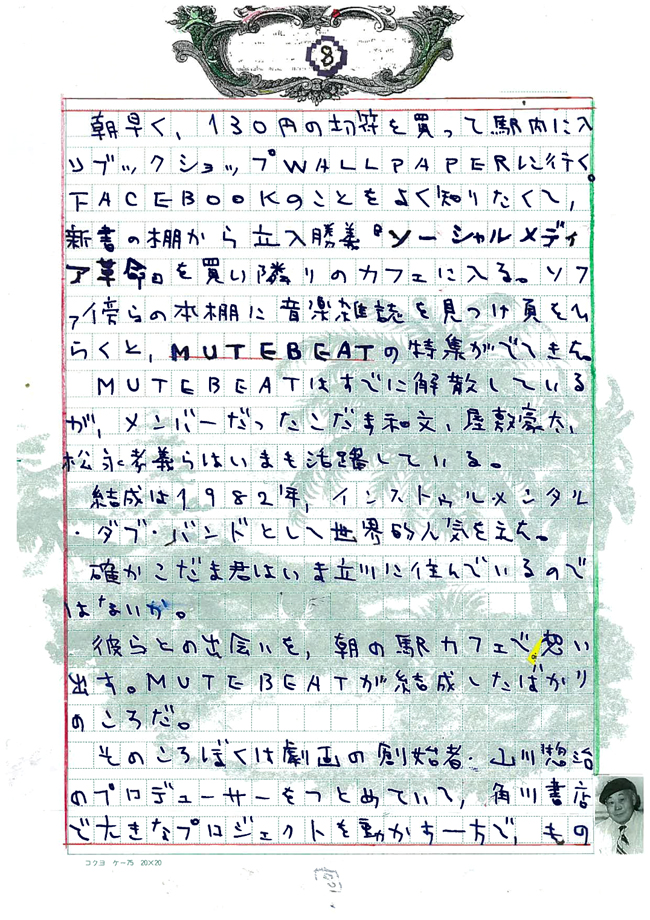 8
朝早く、130円の切符を買って駅内に入
りブックショップWALLPAPERに行く。
FACEBOOKのことをよく知りたくて、
新書の棚から立入勝義『ソーシャルメディ
ア革命』を買い隣りのカフェに入る。ソフ
ァ傍らの本棚に音楽雑誌を見つけ頁をひ
らくと、MUTEBEATの特集がでてきた。
MUTEBEATはすでに解散している
が、メンバーだったこだま和文、屋敷豪太、
松永孝義らはいまも活躍している。
結成は1982年、インストゥルメンタル
・ダブ・バンドとして世界的人気をえた。
確かこだま君はいま立川に住んでいるので
はないか。
彼らとの出会いを、朝の駅カフェで想い
出す。MUTEBEATが結成したばかり
のころだ。
そのころぼくは劇画の創始者・山川惣治
のプロデューサーをつとめていて、角川書店
で大きなプロジェクトを動かす一方で、もの
コクヨ ケー75 20×20